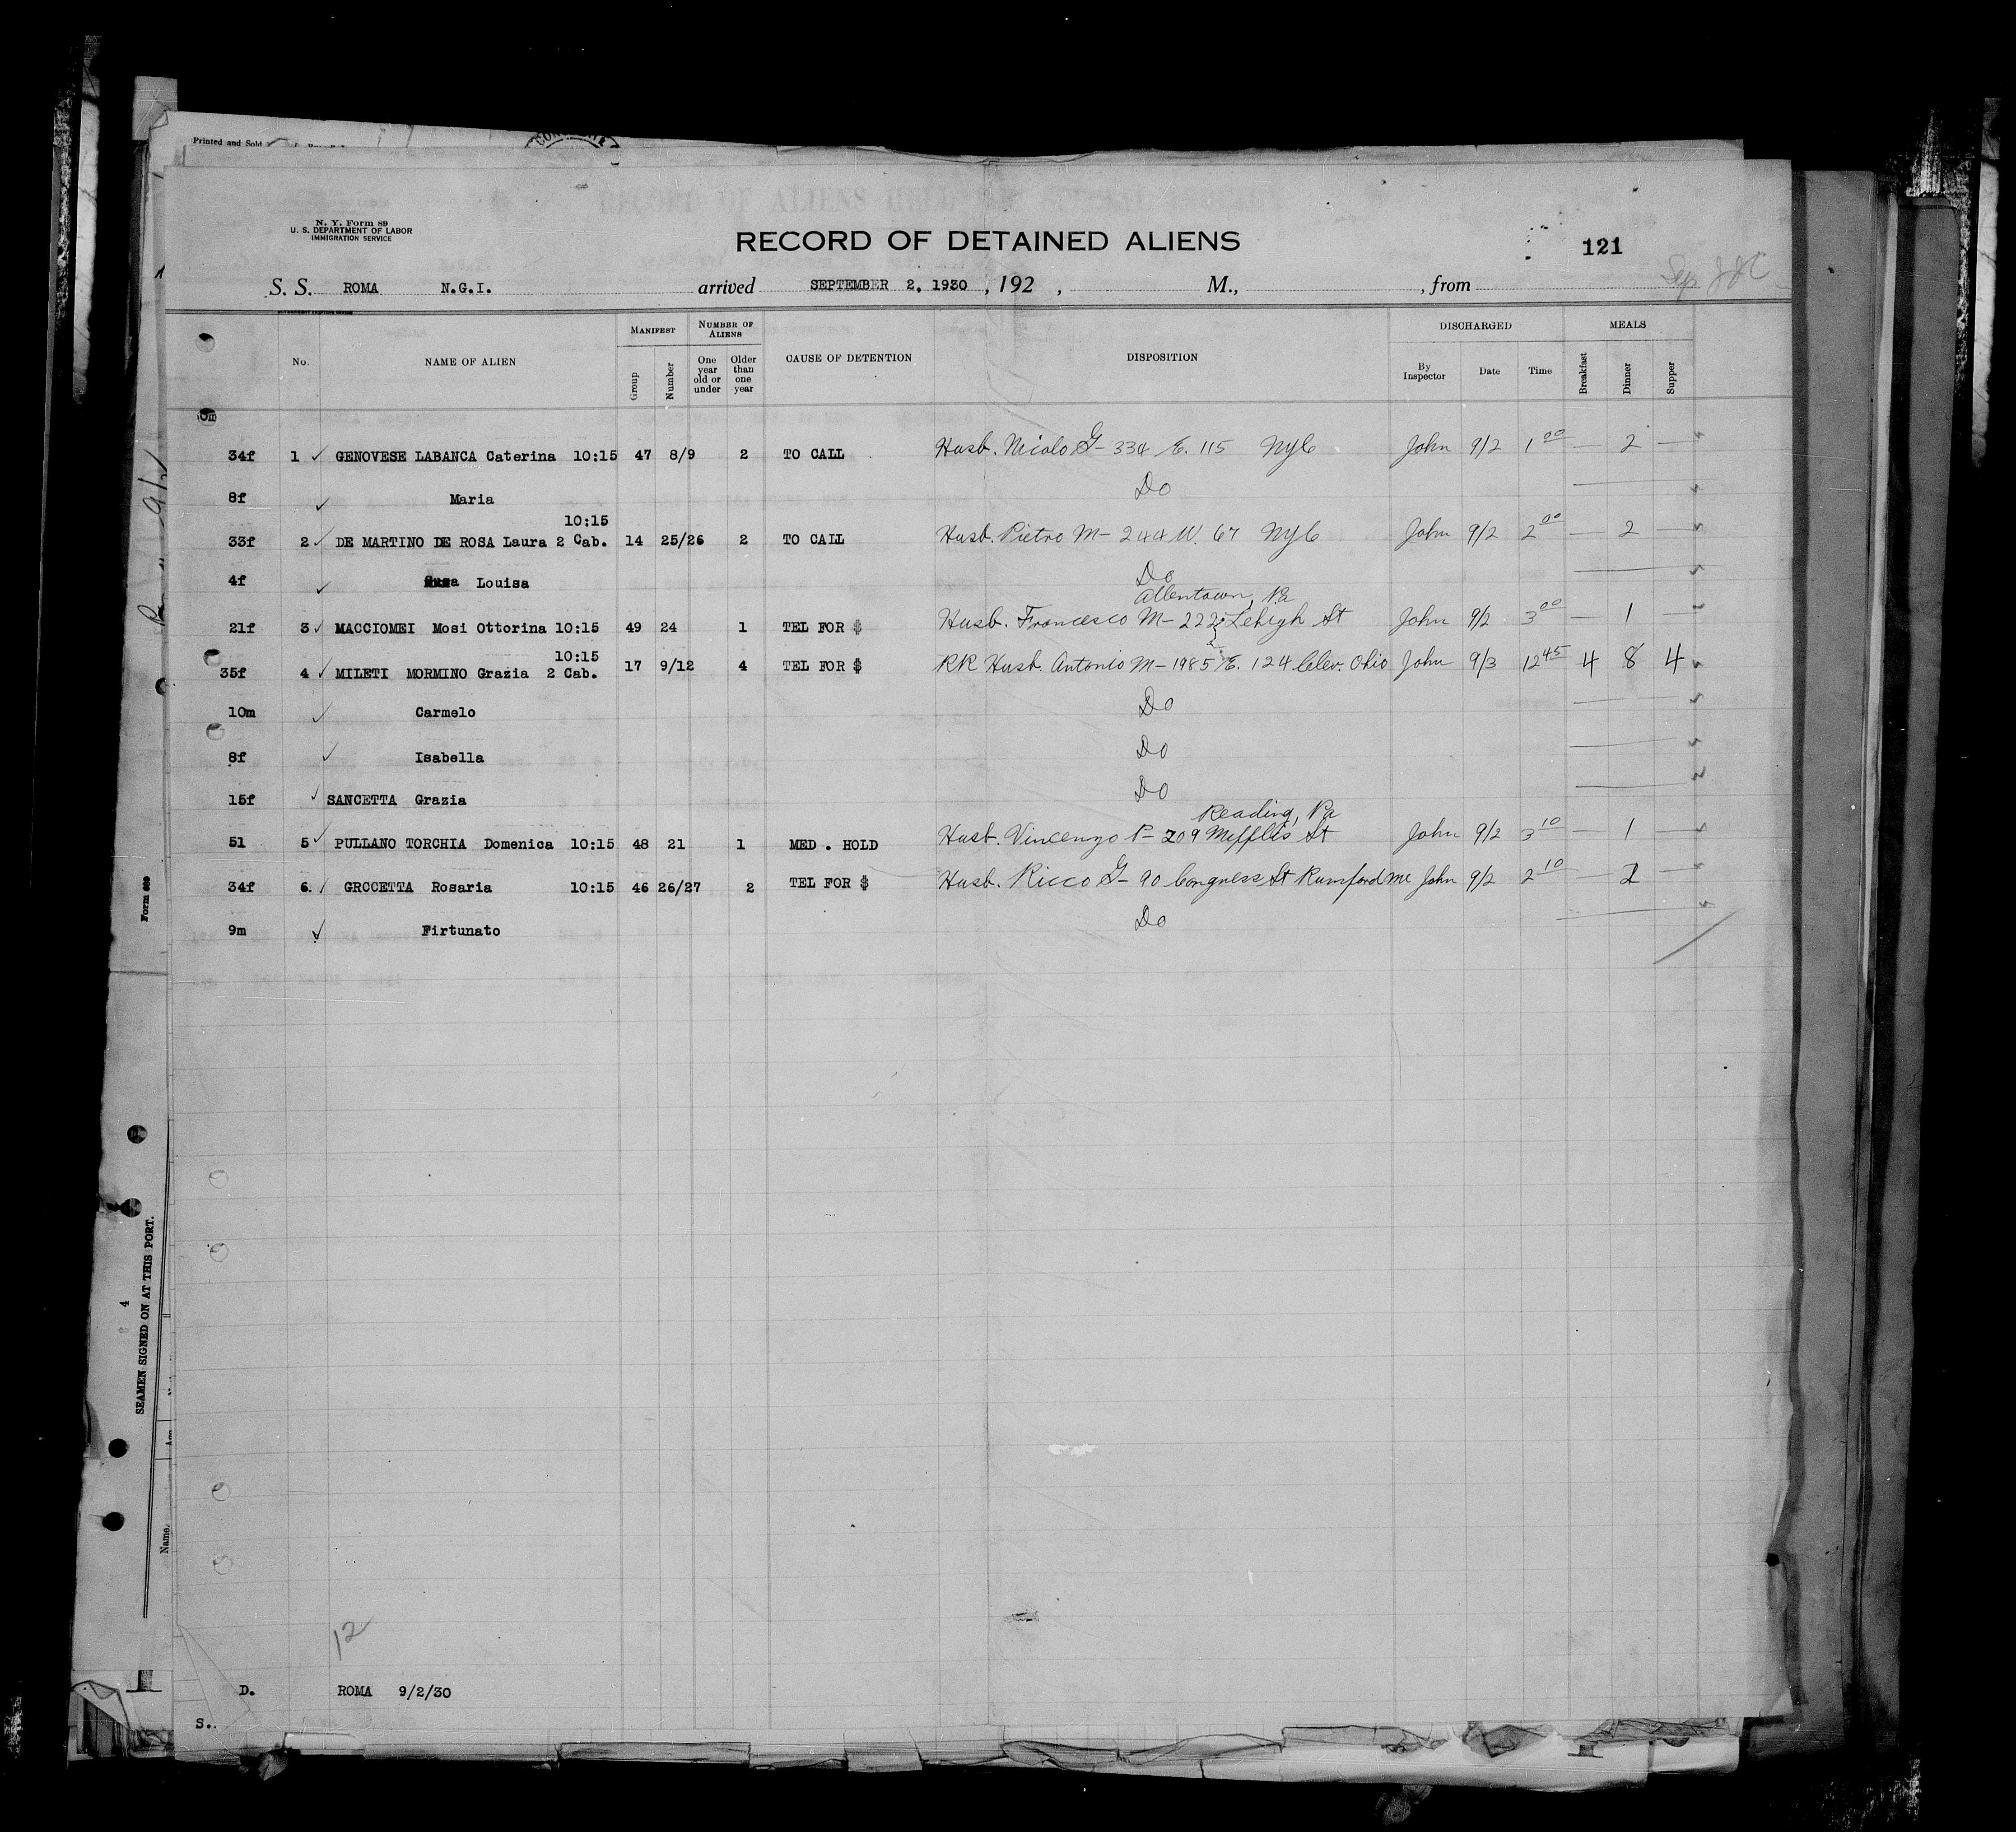 Printed and Sold
N. Y. Form 89
U. S. DEPARTMENT OF LABOR
IMMIGRATION SERVICE
RECORD OF DETAINED ALIENS
121
S. S. ROMA N.G.I. arrived SEPTEMBER 2, 1930 , 192 , M., , from
No. NAME OF ALIEN MANIFEST NUMBER OF ALIENS CAUSE OF DETENTION DISPOSITION DISCHARGED MEALS
Group Number One year old or under Older than one year By Inspector Date Time Breakfast Dinner Supper
34f 1 ✓ GENOVESE LABANCA Caterina 10:15 47 8/9 2 TO CALL Husb. Nicolo G- 334 E. 115 NYC John 9/2 1 00 — 2 —
8f ✓ Maria Do
10:15
33f 2 ✓ DE MARTINO DE ROSA Laura 2 Cab. 14 25/26 2 TO CALL Husb. Pietro M- 244 W. 67 NYC John 9/2 2 00 — 2 —
4f ✓ Louisa Do
Allentown, Pa
21f 3 ✓ MACCIOMEI Mosi Ottorina 10:15 49 24 1 TEL FOR $ Husb. Francesco M- 222½ Lehigh St John 9/2 3 00 — 1 —
10:15
35f 4 ✓ MILETI MORMINO Grazia 2 Cab. 17 9/12 4 TEL FOR $ RR Husb. Antonio M- 1985 E. 124 Clev. Ohio John 9/3 12 45 4 8 4
10m ✓ Carmelo Do
8f ✓ Isabella Do
15f ✓ SANCETTA Grazia Do
Reading, Pa
51 5 ✓ PULLANO TORCHIA Domenica 10:15 48 21 1 MED . HOLD Husb. Vincenzo P- 209 Mifflis St John 9/2 3 10 — 1 —
34f 6. / GROCETTA Rosaria 10:15 46 26/27 2 TEL FOR $ Husb. Ricco G- 90 Congress St Rumford Me John 9/2 2 10 — 2 —
9m ✓ Firtunato Do
Form 689
4
SEAMEN SIGNED ON AT THIS PORT.
Name.
12
D. ROMA 9/2/30
S..